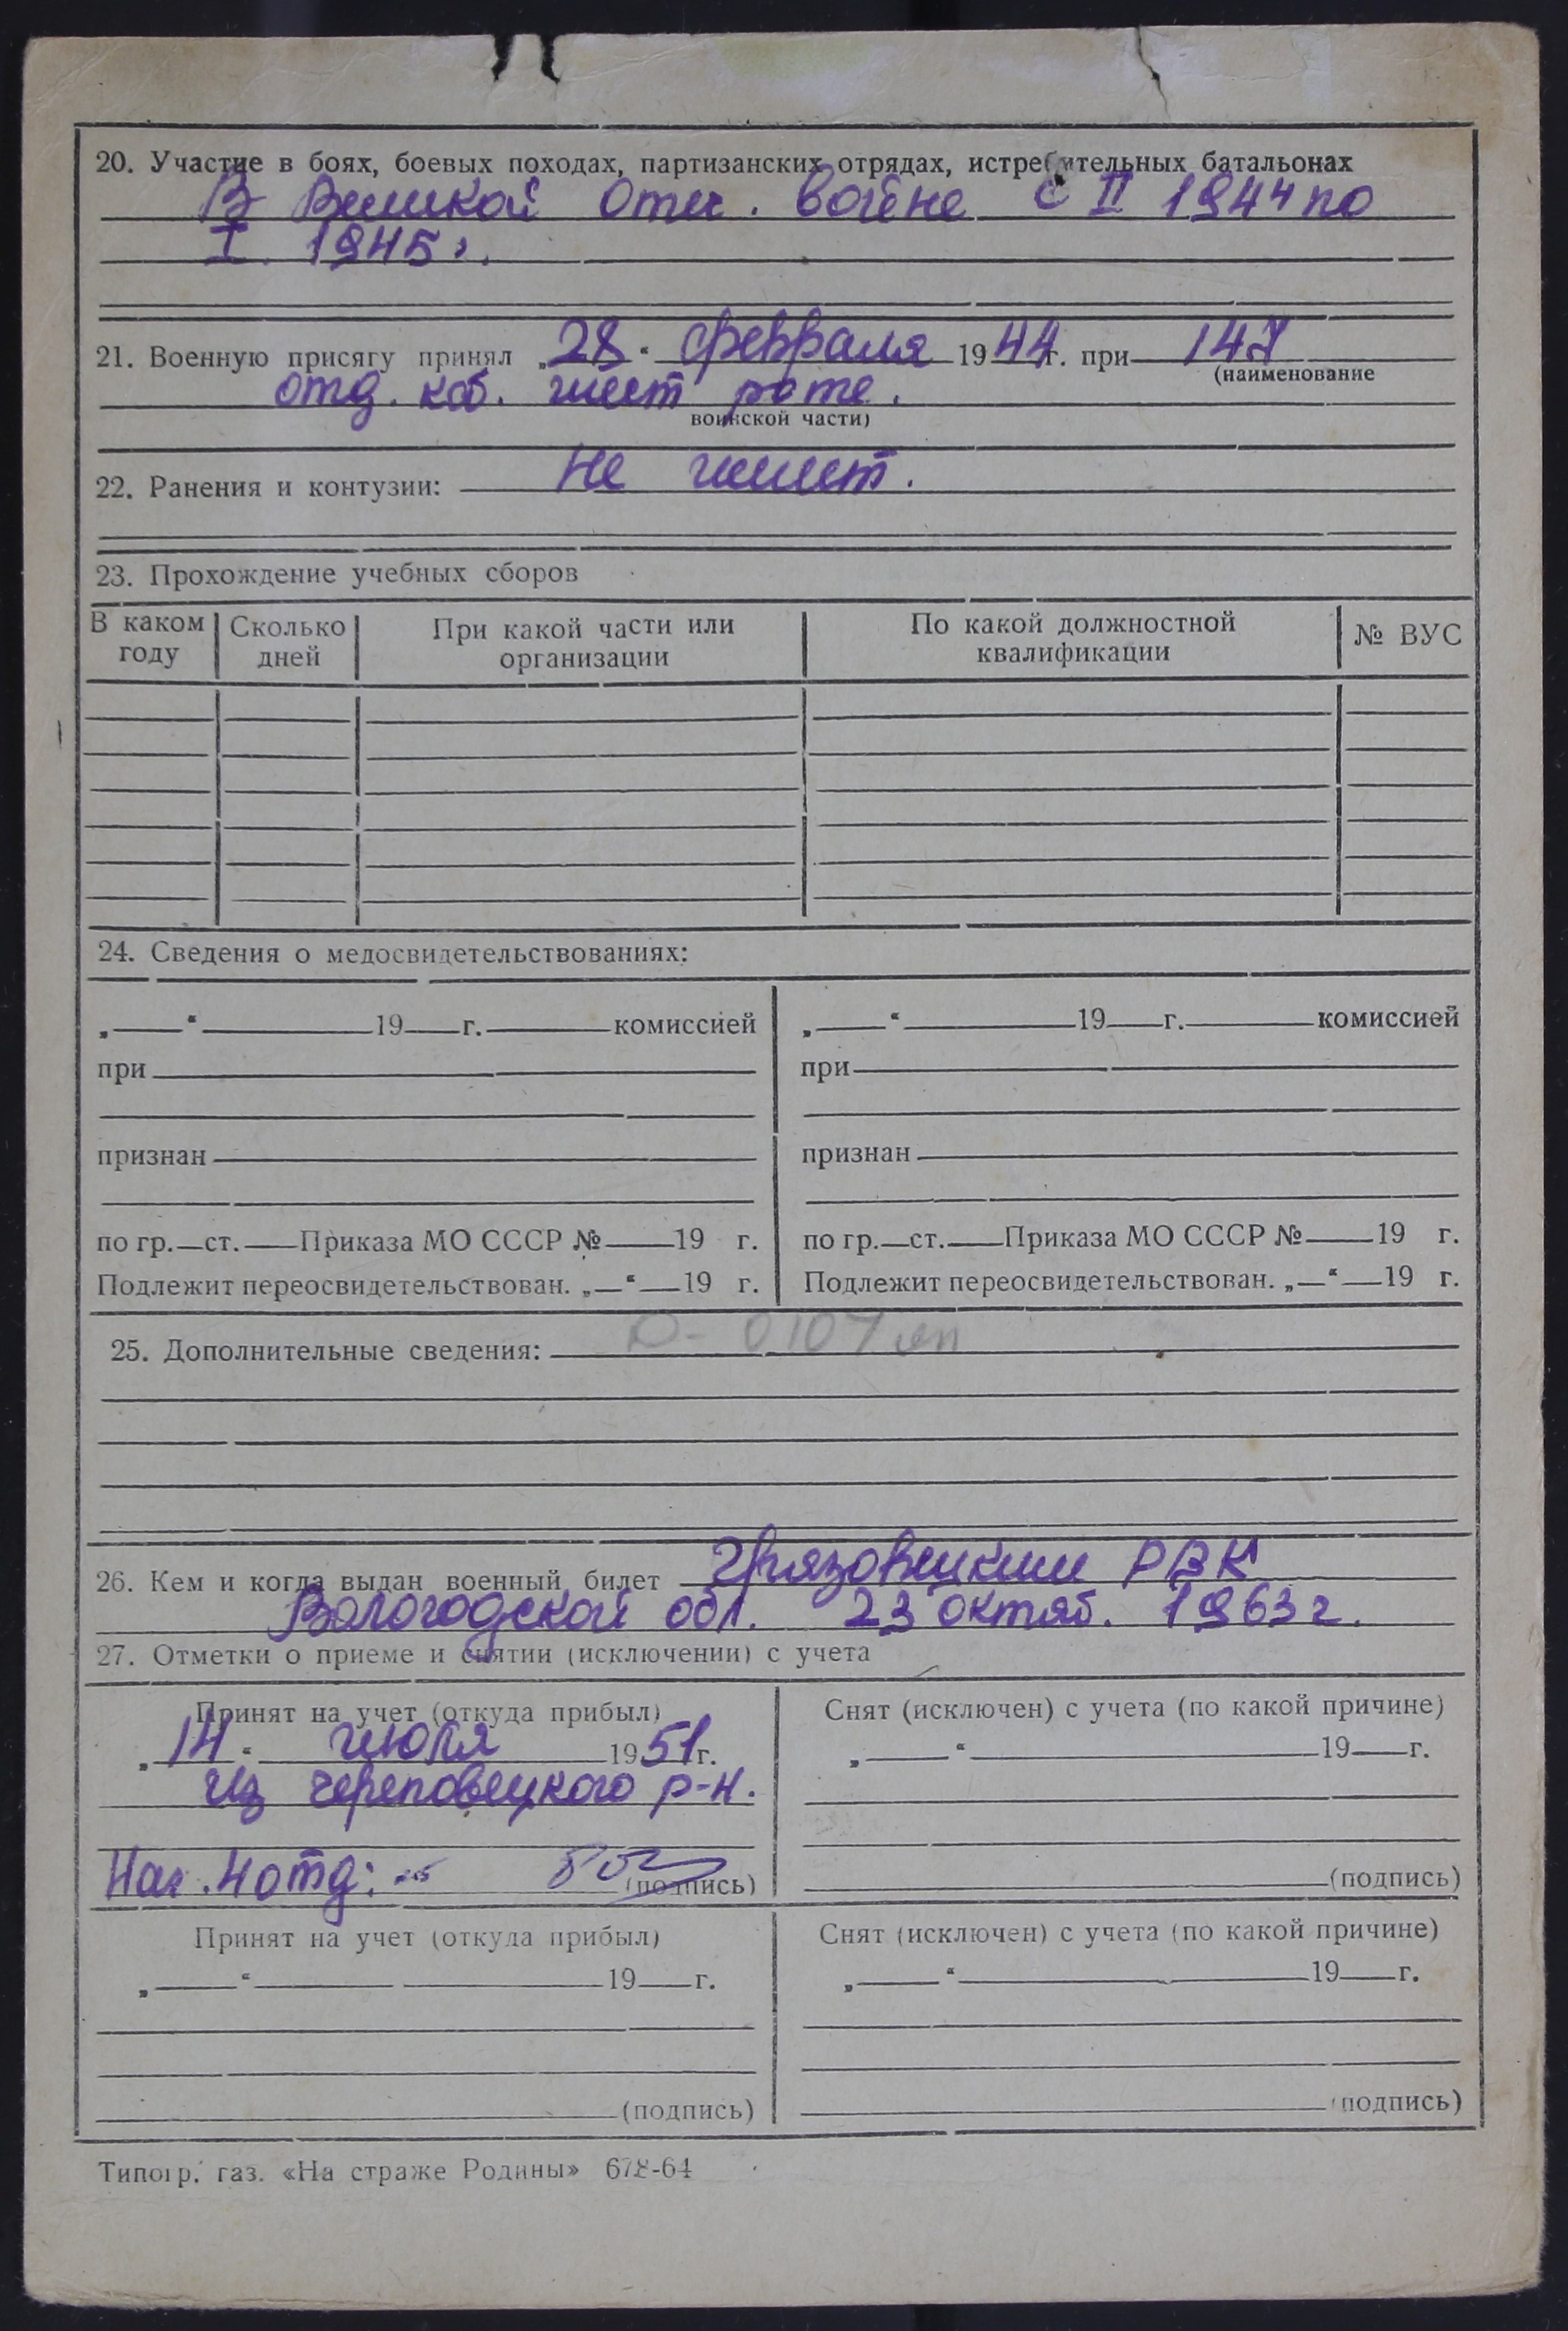 20. Участие в боях, боевых походах, партизанских отрядах, истребительных батальонах
В Великой Отеч. войне с II 1944 по
I. 1945 г.
21. Военную присягу принял „28“ февраля 1944 г. при 147
(наименование
отд. каб. шест роте.
воинской части)
22. Ранения и контузии: не имеет.
23. Прохождение учебных сборов
В каком году | Сколько дней | При какой части или организации | По какой должностной квалификации | № ВУС
24. Сведения о медосвидетельствованиях:
„ “ 19 г. комиссией „ “ 19 г. комиссией
при при
признан признан
по гр. ст. Приказа МО СССР № 19 г. по гр. ст. Приказа МО СССР № 19 г.
Подлежит переосвидетельствован. „ “ 19 г. Подлежит переосвидетельствован. „ “ 19 г.
25. Дополнительные сведения:
26. Кем и когда выдан военный билет Грязовецким РВК
Вологодской обл. 23 октяб. 1963 г.
27. Отметки о приеме и снятии (исключении) с учета
Принят на учет (откуда прибыл) Снят (исключен) с учета (по какой причине)
„14“ июля 1951 г. „ “ 19 г.
из Череповецкого р-н.
Нач. 4 отд: (подпись) (подпись)
Принят на учет (откуда прибыл) Снят (исключен) с учета (по какой причине)
„ “ 19 г. „ “ 19 г.
(подпись) (подпись)
Типогр. газ. «На страже Родины» 678-64